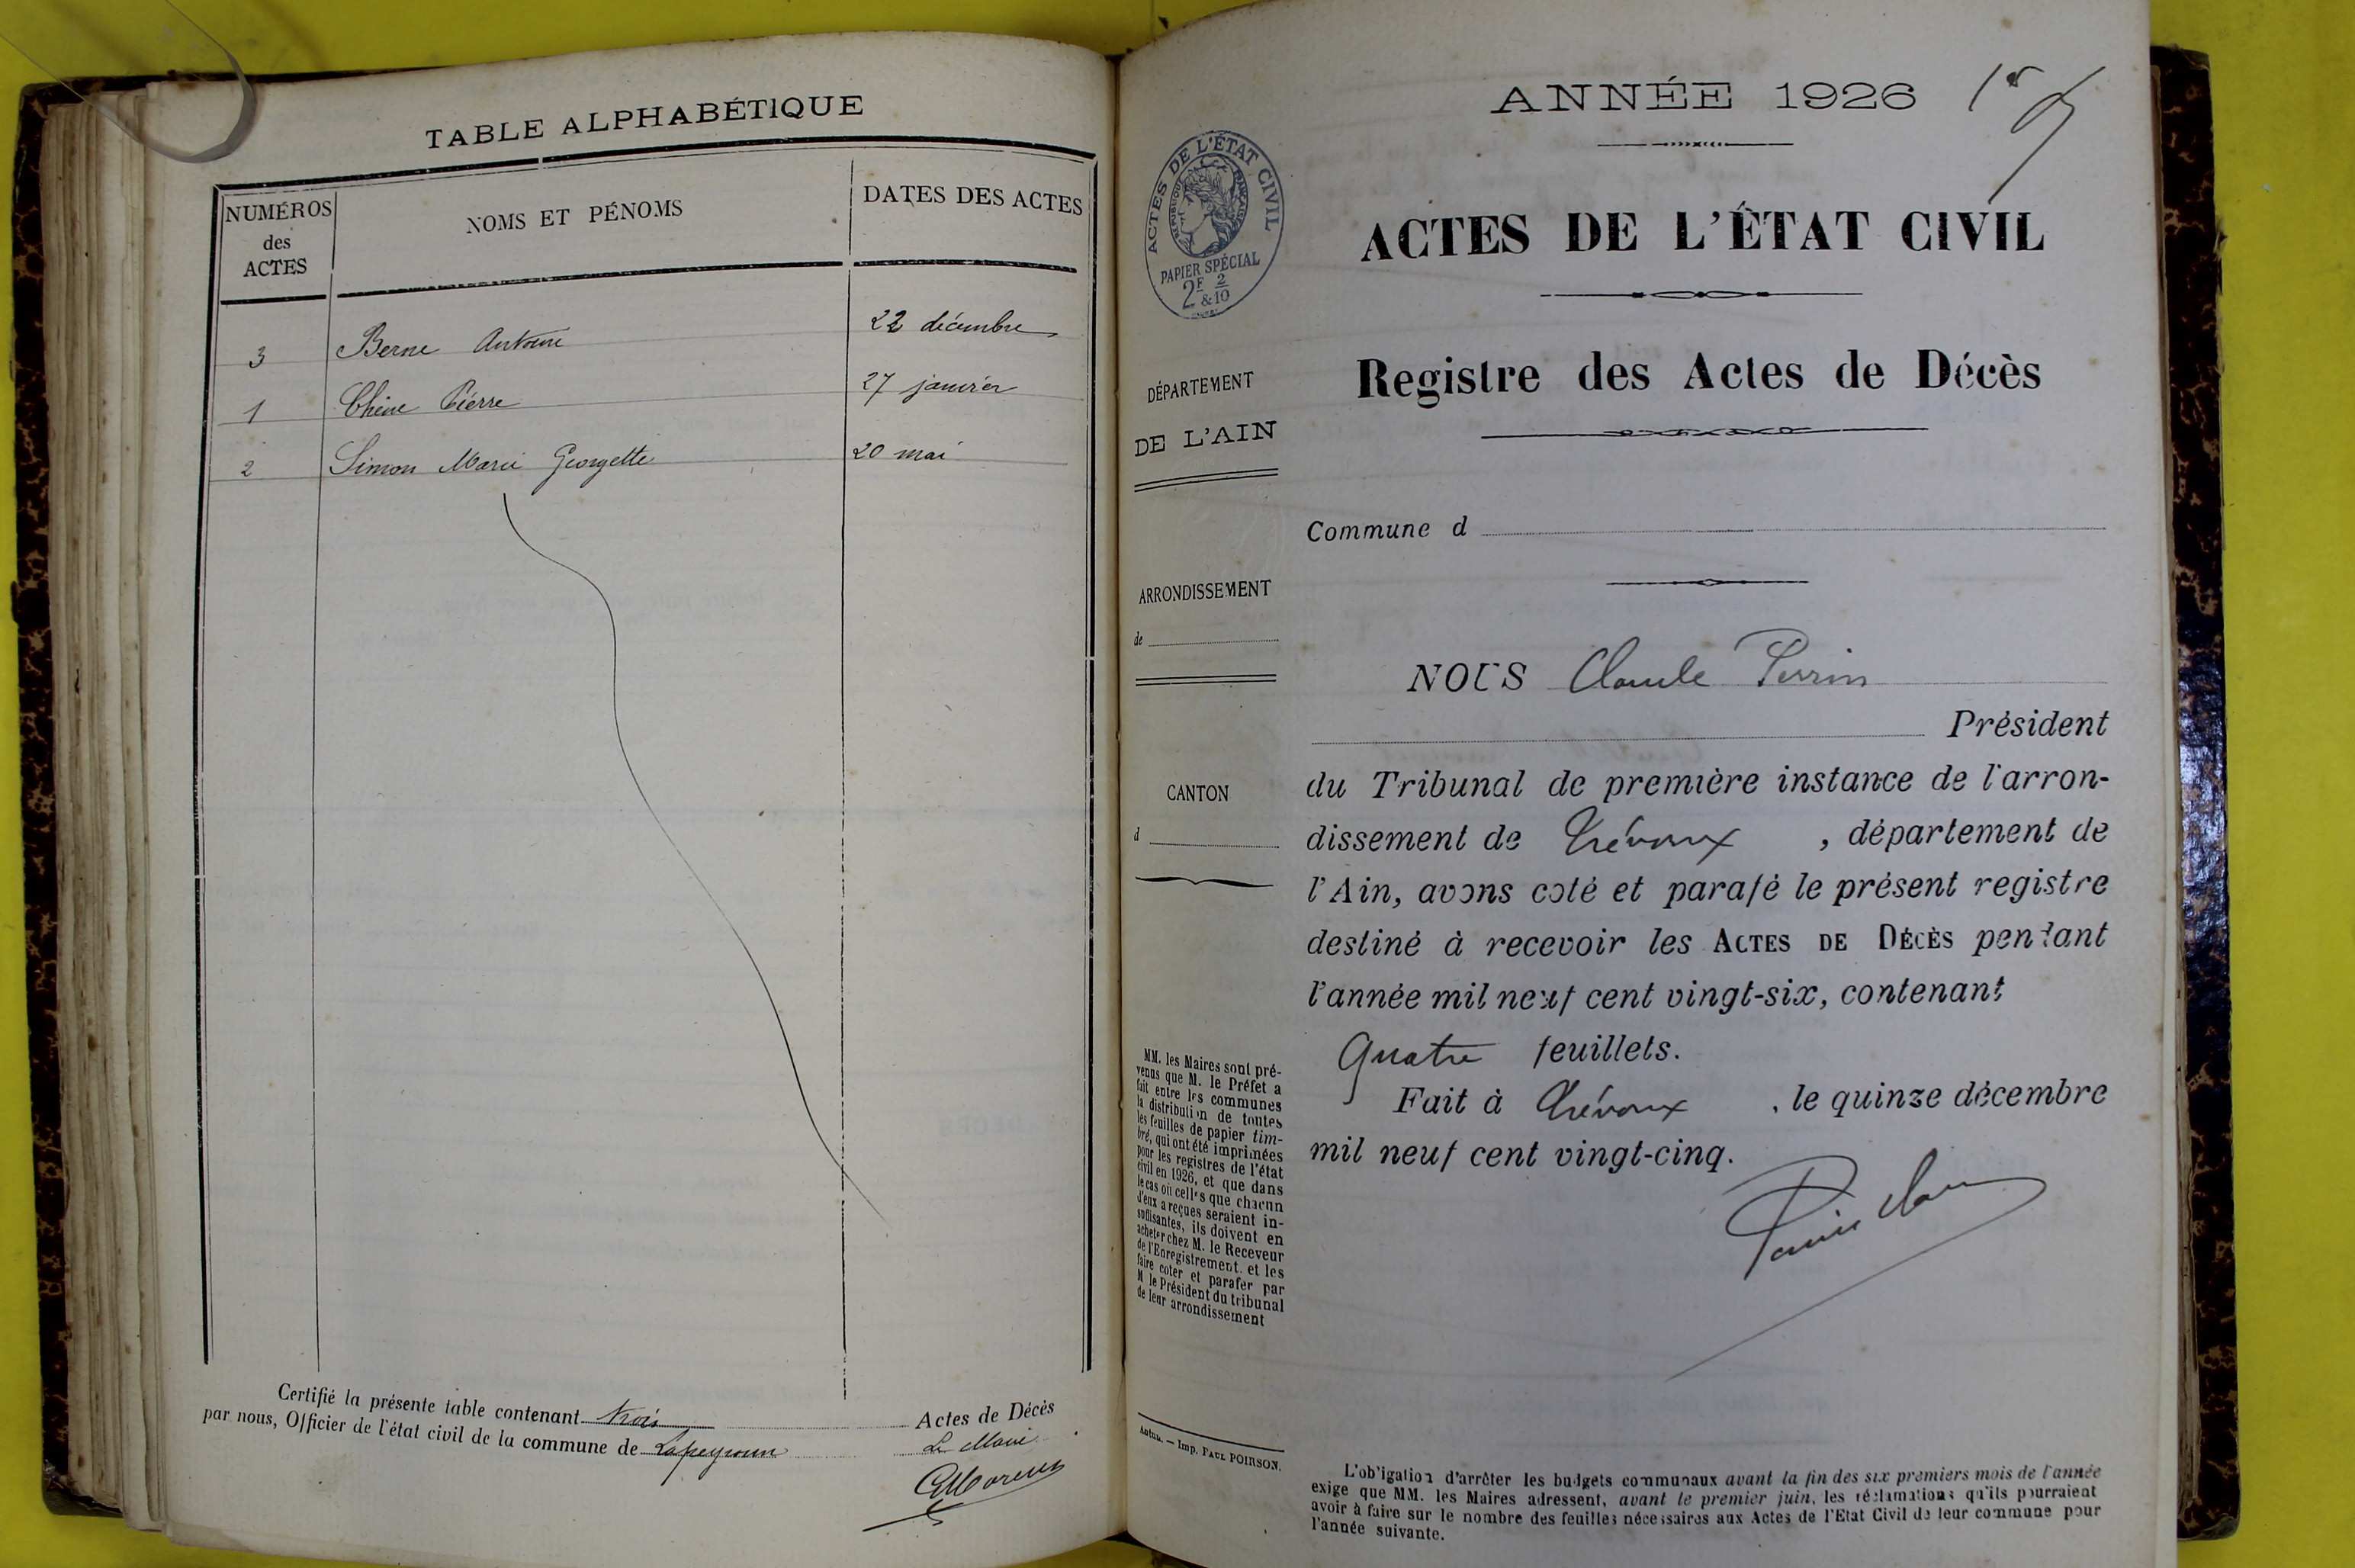 TABLE ALPHABÉTIQUE
NUMÉROS
des
ACTES
NOMS ET PÉNOMS
DATES DES ACTES
3 Berne Antoine 22 décembre
1 Chêne Pierre 27 janvier
2 Simon Marie Georgette 20 mai
Certifié la présente table contenant trois Actes de Décès
par nous, Officier de l'état civil de la commune de Lapeyrouse Le Maire
ANNÉE 1926 1er
ACTES DE L'ÉTAT CIVIL
RÉPUBLIQUE FRANÇAISE
PAPIER SPÉCIAL
2F & 2/10
ACTES DE L'ÉTAT CIVIL
Registre des Actes de Décès
DÉPARTEMENT
DE L'AIN
Commune d
ARRONDISSEMENT
de
CANTON
d
NOUS Claude Perrin
Président
du Tribunal de première instance de l'arron-
dissement de Trévoux , département de
l'Ain, avons coté et parafé le présent registre
destiné à recevoir les ACTES DE DÉCÈS pendant
l'année mil neuf cent vingt-six, contenant
Quatre feuillets.
Fait à Trévoux , le quinze décembre
mil neuf cent vingt-cinq.
MM. les Maires sont pré-
venus que M. le Préfet a
fait entre les communes
la distribution de toutes
les feuilles de papier tim-
bré, qui ont été imprimées
pour les registres de l'état
civil en 1926, et que dans
le cas où celles que chacun
d'eux a reçues seraient in-
suffisantes, ils doivent en
acheter chez M. le Receveur
de l'Enregistrement. et les
faire coter et parafer par
M le Président du tribunal
de leur arrondissement
Autun. — Imp. PAUL POIRSON.
L'obligation d'arrêter les budgets communaux avant la fin des six premiers mois de l'année
exige que MM. les Maires adressent, avant le premier juin, les réclamations qu'ils pourraient
avoir à faire sur le nombre des feuilles nécessaires aux Actes de l'Etat Civil de leur commune pour
l'année suivante.